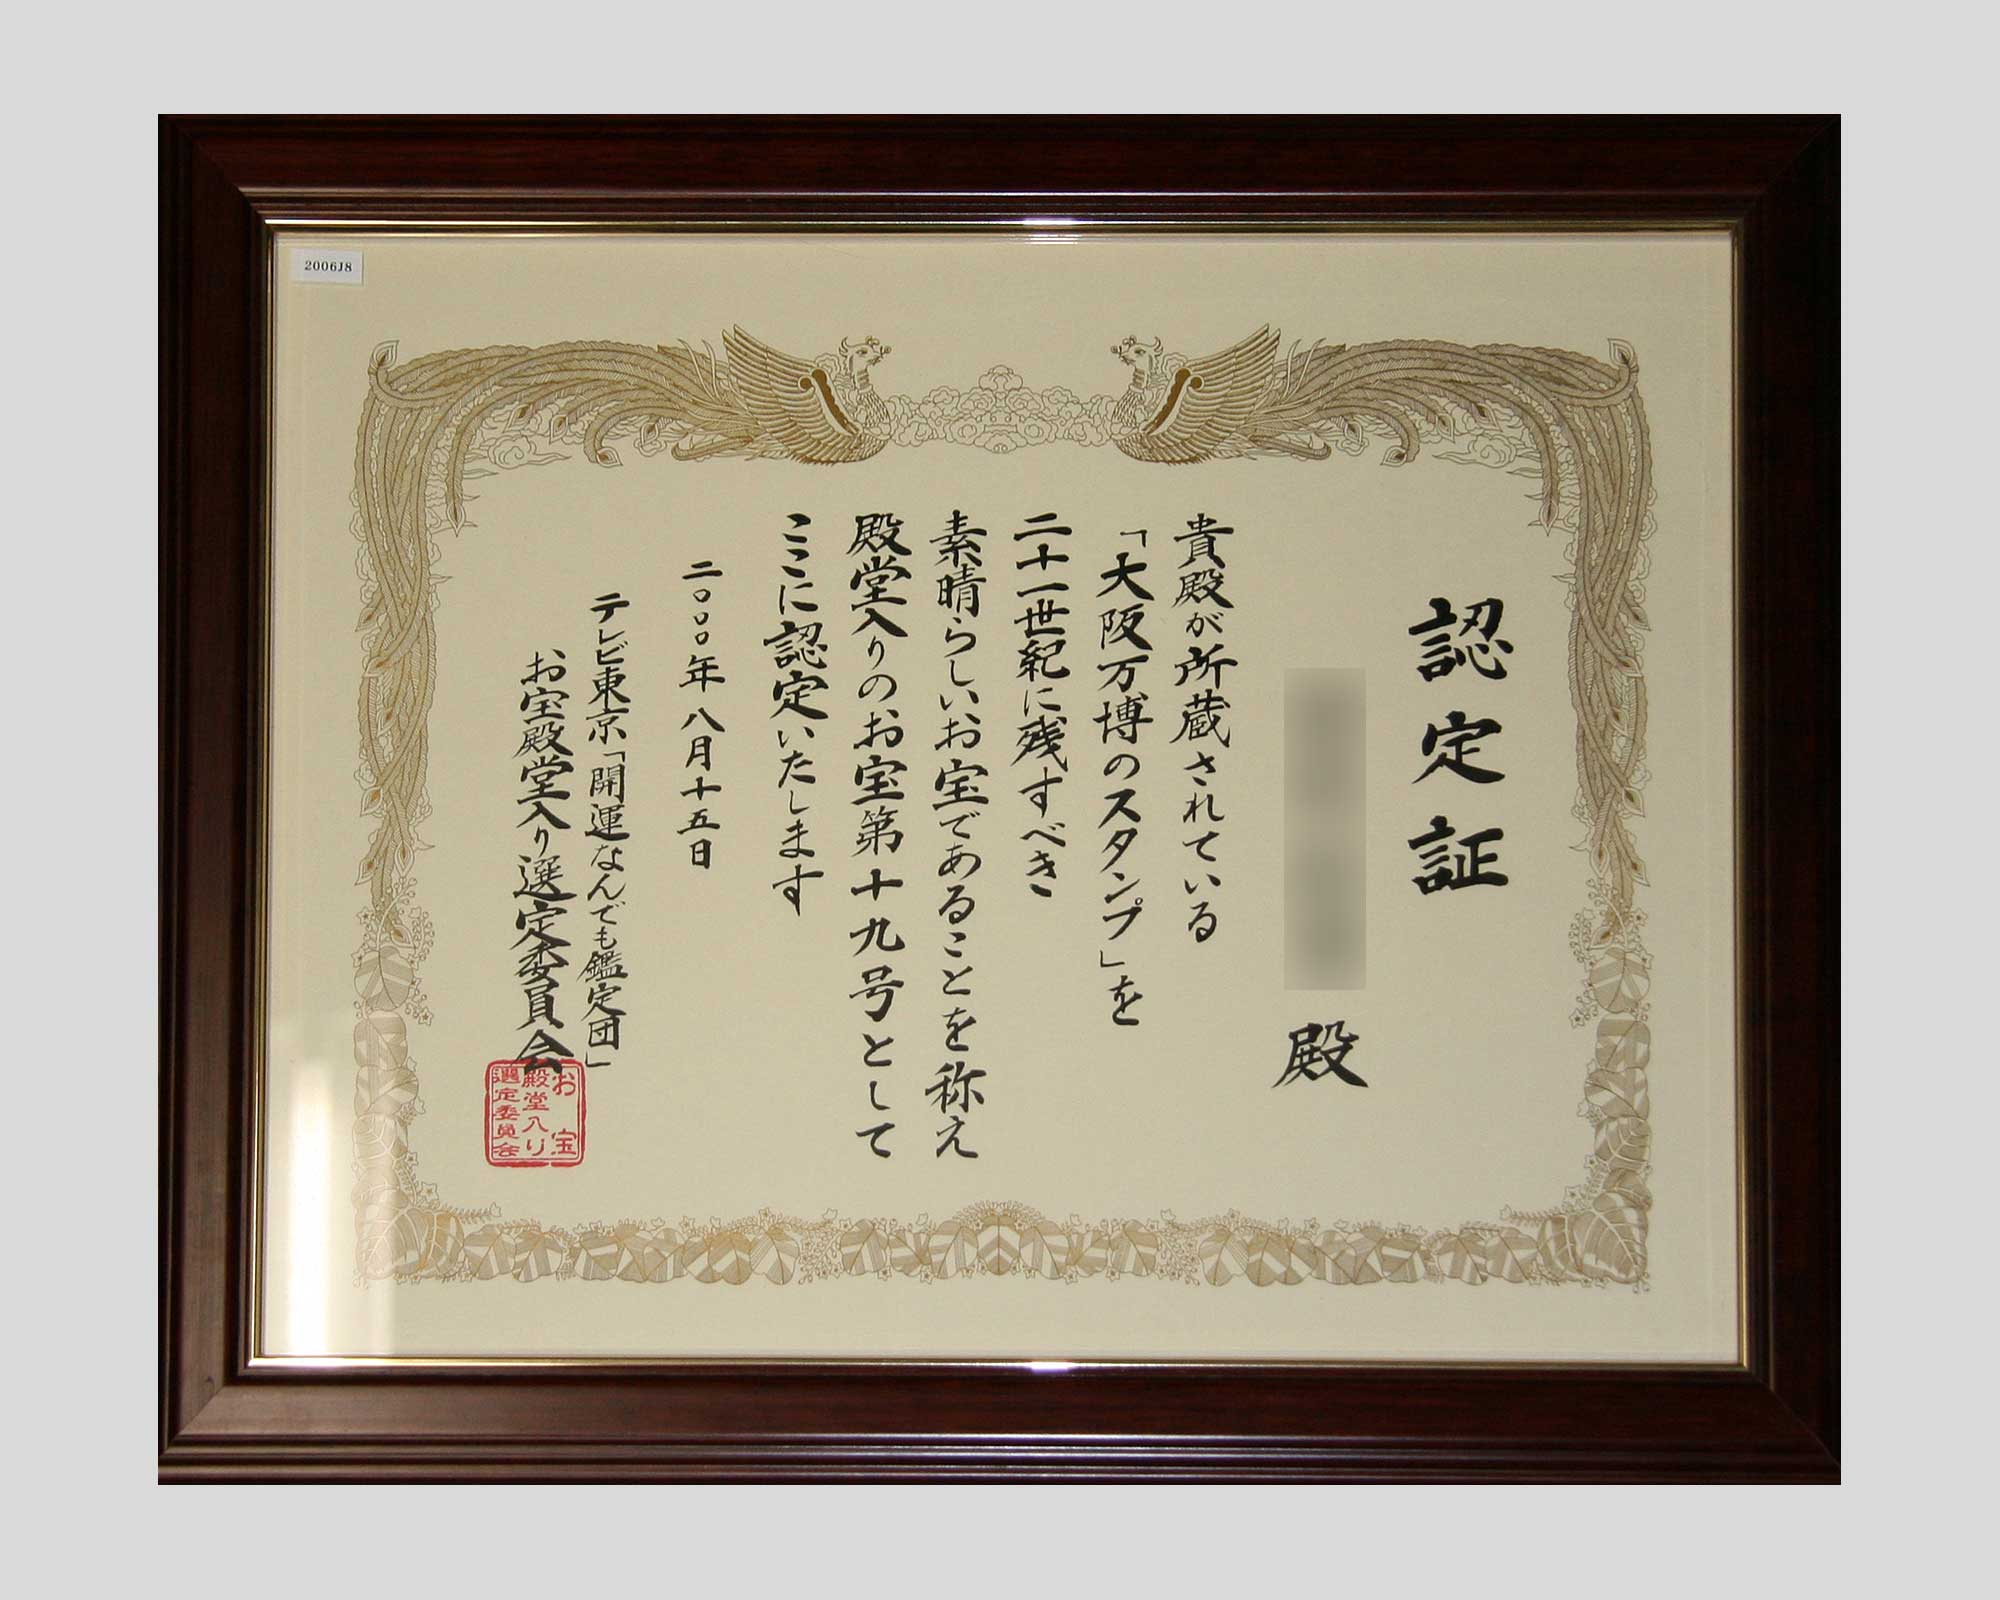 2006J8
認定証
殿
貴殿が所蔵されている
「大阪万博のスタンプ」を
二十一世紀に残すべき
素晴らしいお宝であることを称え
殿堂入りのお宝第十九号として
ここに認定いたします
二〇〇〇年八月十五日
テレビ東京「開運なんでも鑑定団」
お宝殿堂入り選定委員会
お宝
殿堂入り
選定委員会